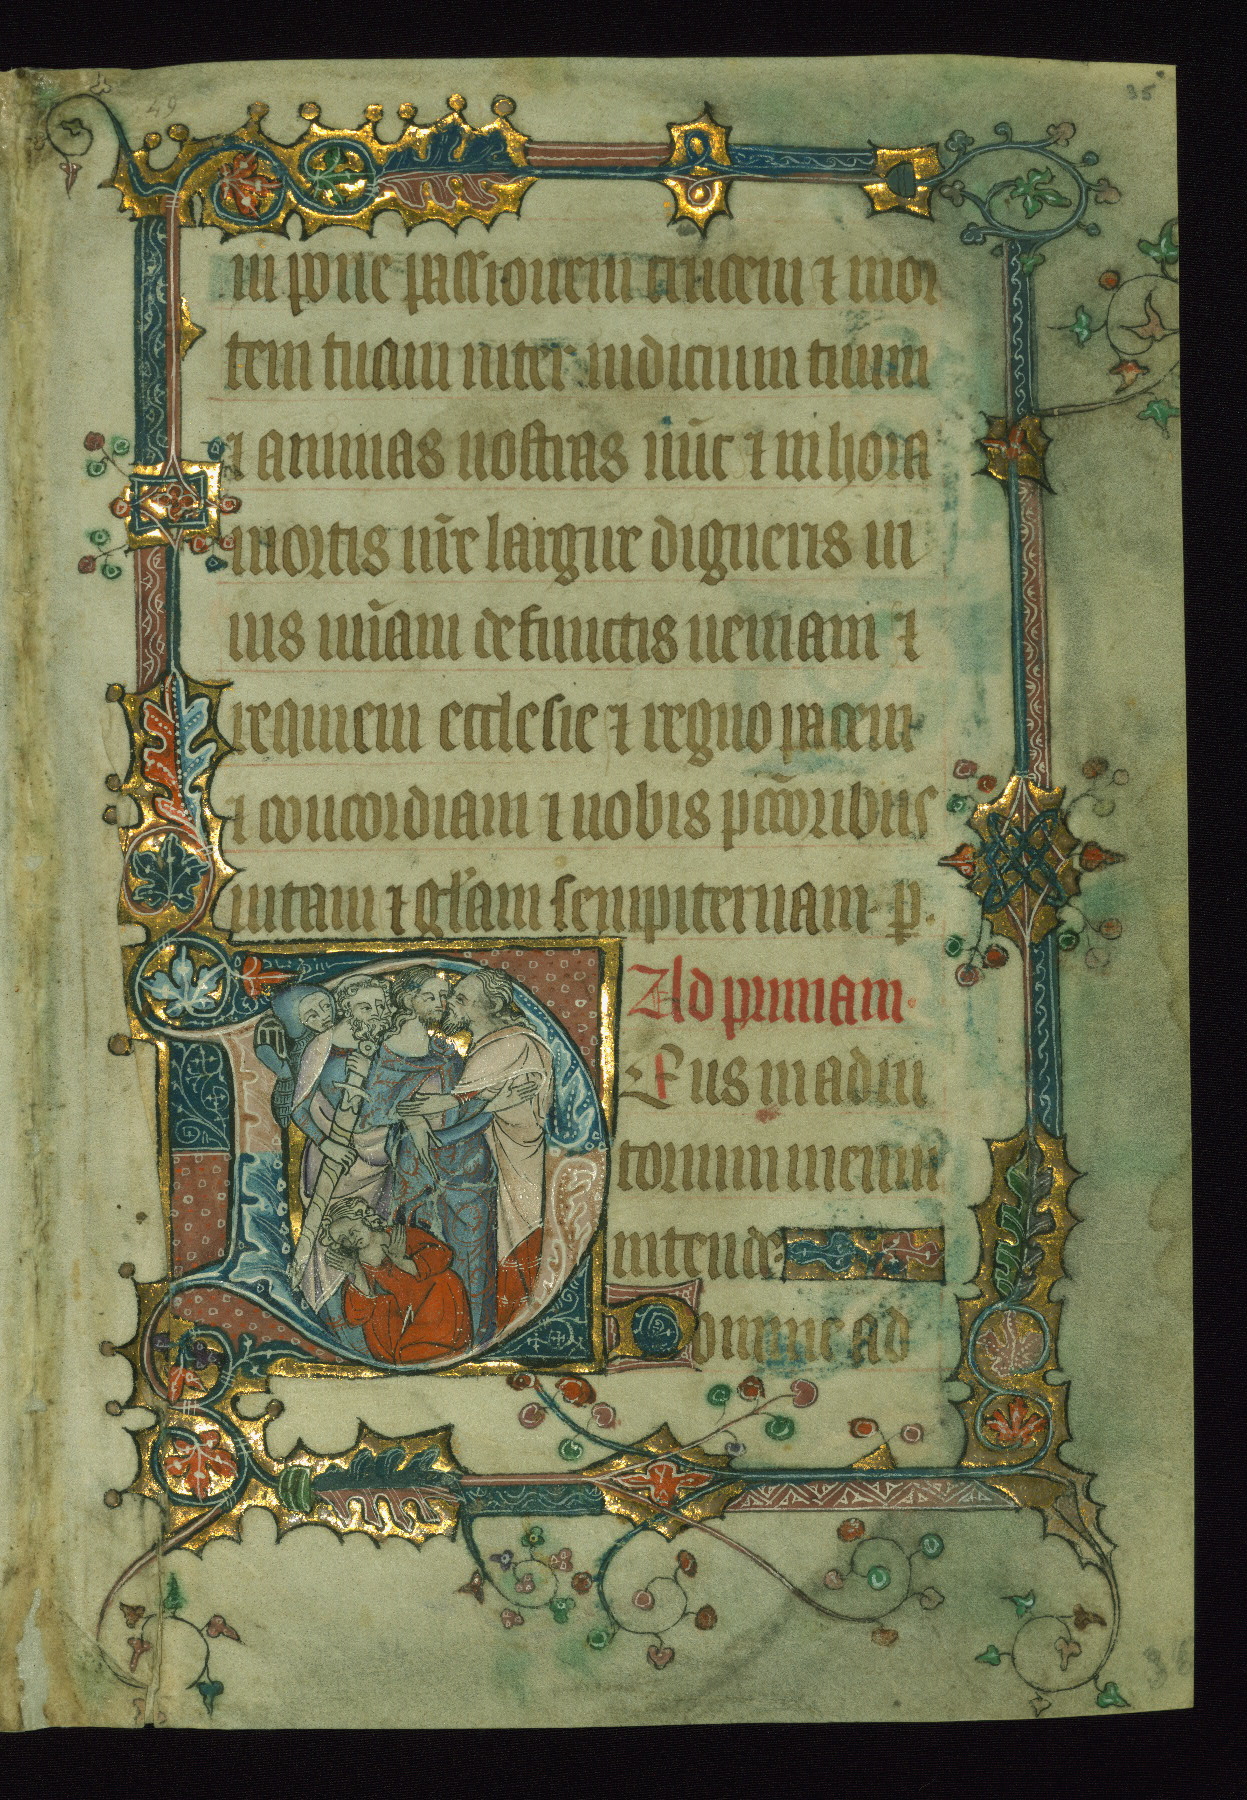 49
35
ui pone passionem crucem ⁊ mor
tem tuam inter iudicium tuum
⁊ animas nostras nūc ⁊ in hora
mortis nr̄e largire digneris ui
uis ueniam defunctis ueniam ⁊
requiem ecclesie ⁊ regno pacem
⁊ concordiam ⁊ nobis pcc̄oribus
uitam ⁊ gl̓am sempiternam. ꝑ.
Ad primam.
Eus in adiu
torium meum
intende
Domine ad